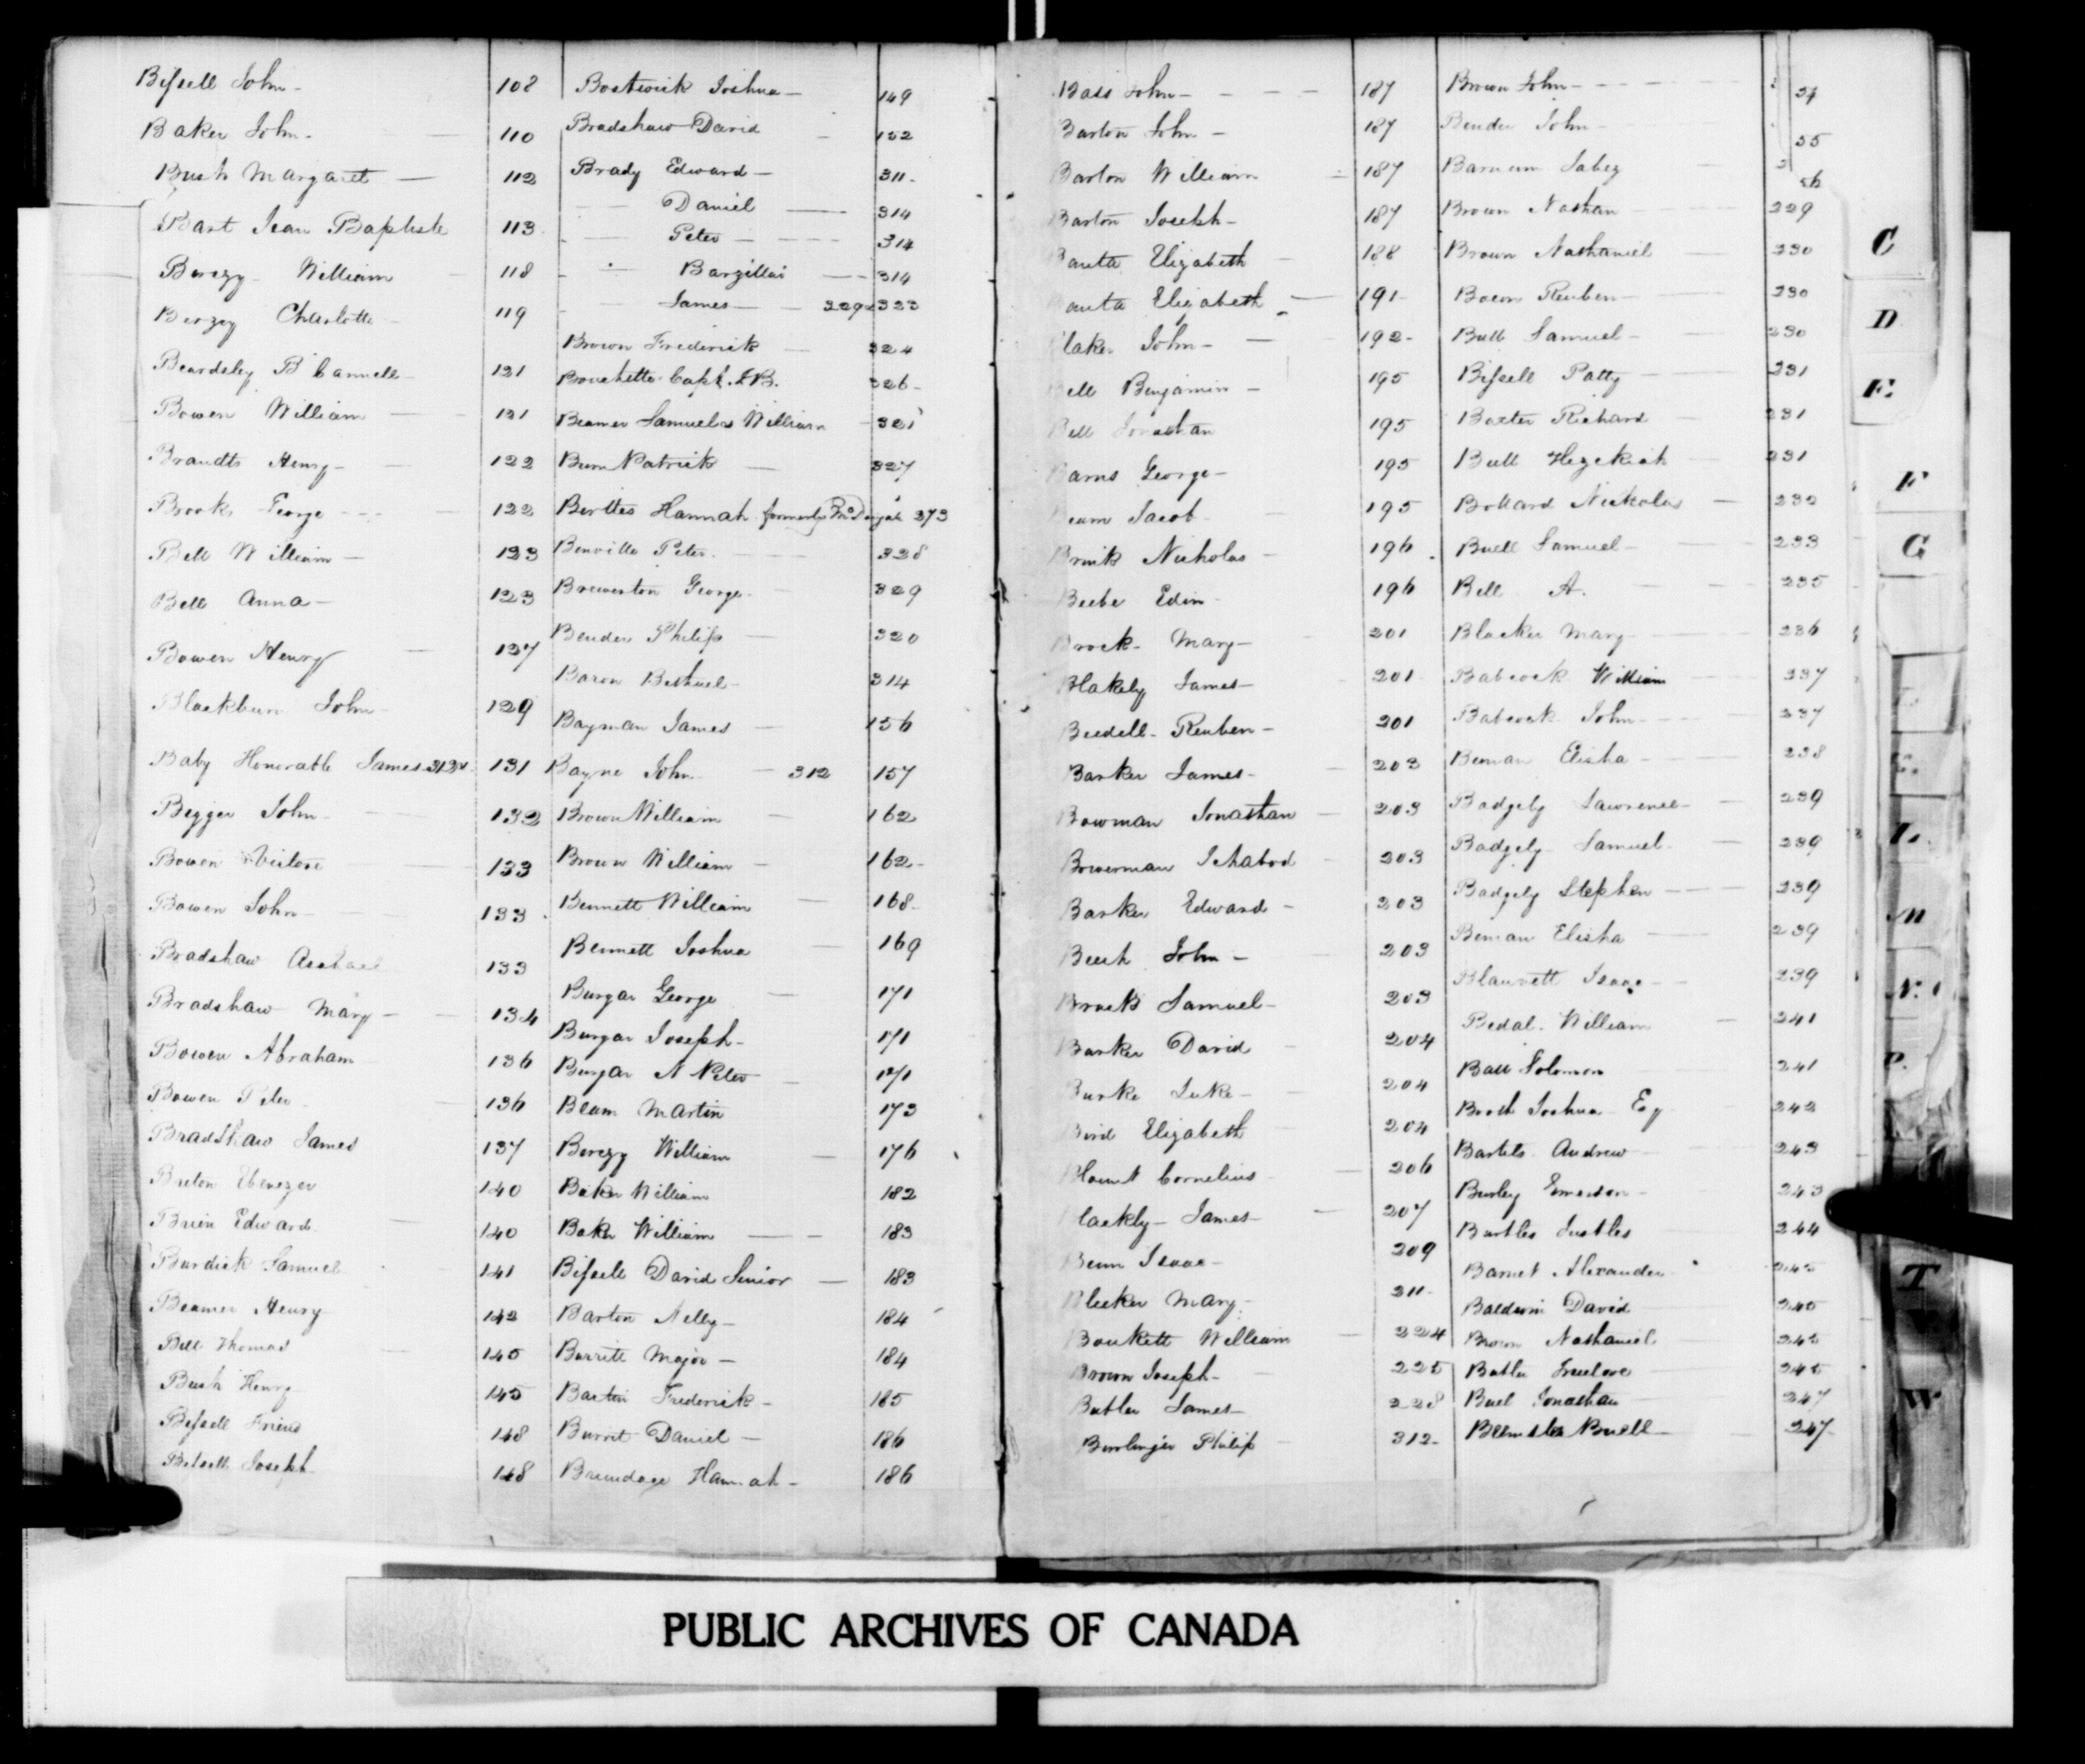 Bissell John - 108
Baker John - 110
Bush Margaret - 112
Bart Jean Baptiste 113
Berczy William 118
Berczy Charlotte 119
Beardsley B 121
Bowen William 121
Brandts Henry - 122
Brook George - - - 122
Bell William - 123
Bell Anna - 123
Bowen Henry 127
Blackburn John 129
Baby Honorable James 131
Begger John 132
Bowen 133
Bowen John - 133
Bradshaw 133
Bradshaw Mary - 134
Bowen Abraham 136
Bowen Peter 136
Bradshaw James 137
Breton Ebenezer 140
Brien Edward 140
Burdick Samuel 141
Beamer Henry 142
Bell Thomas 145
Bush Henry 145
Bissell Friend 148
Bissell Joseph 148
Bostwick Joshua - 149
Bradshaw David - 152
Brady Edward - 311 -
Daniel - 314
Peter - 314
Barzillai - 314
James - 329 & 323
Brown Frederick - 324
Bouchette Capt. J B. 326 -
Beamer Samuel & William 321
Burn Patrick - 327
Berttes Hannah formerly 373
Benville Peter 328
Brewerton George 329
Bender Philip 320
Baron Bethuel - 314
Bayman James - 156
Bayne John - 312 157
Brown William - 162
Brown William - 162 -
Bennett William - 168 -
Bennett Joshua - 169
Burgar George - 171
Burgar Joseph - 171
Burgar N Peter 171
Beam Martin 173
Berczy William - 176
Baker William 182
Baker William - 183
Bissell David Senior - 183
Barton Nelly - 184
Burritt Major - 184
Bartin Frederick - 185
Burrit Daniel - 186
Brundage Hannah - 186
Bass John - 187
Barton John - 187
Barton William 187
Barton Joseph - 187
Banta Elizabeth 188
anta Elizabeth - 191 -
laker John - 192 -
ell Benjamin - 195
Bell Jonathan 195
arns George - 195
eam Jacob 195
Brink Nicholas - 196
Beebe Edin 196
Brock Mary - 201
Blakely James - 201
Beedell Reuben - 201
Barker James - 203
Bowman Jonathan - 203
Bowerman Ichabod 203
Barker Edward - 203
Beech John - 203
Brock Samuel - 203
Barker David 204
Burke Luke - 204
Bird Elizabeth 204
Blount Cornelius - 206
lackly James - 207
Benn Isaac - 209
Bleeker Mary 211 -
Boukett William - 224
Brown Joseph - 225
Butler James - 228
Burlinger Philip 312 -
Brown John - 54
Bender John - 55
Barnum Jabez 56
Brown Nathan 229
Brown Nathaniel 230
Bacon Reuben - 230
Bull Samuel - 230
Bissell Patty 231
Baxter Richard 231
Bull Hezekiah 231
Bollard Nicholas - 232
Buell Samuel - 233
Bell A. 235
Blacker Mary 236
Babcock William 237
Babcock John - 237
Beman Elisha - 238
Badgely Lawrence - 239
Badgely Samuel - 239
Badgely Stephen - 239
Beman Elisha - 239
Blauvett Isaac - 239
Bedal William - 241
Ball Solomon 241
Booth Joshua Esq 242
Bartels Andrew 243
Burley Emerson - 243
Bartles 244
Barnet Alexander 245
Baldwin David 245
Brown Nathaniel 245
Butler Truelove 245
Buel Jonathan 247
Buell - 247
C
D
E.
F
G
L.
M
N.
P.
T
V
W
PUBLIC ARCHIVES OF CANADA